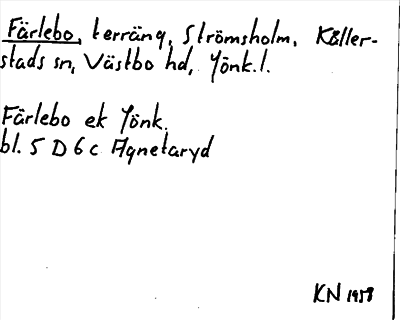 Färlebo, terräng, Strömsholm, Kåller-
stads sn, Västbo hd, Jönk.l.
Färlebo ek Jönk.
bl. 5 D 6 c Agnetaryd
KN 1958